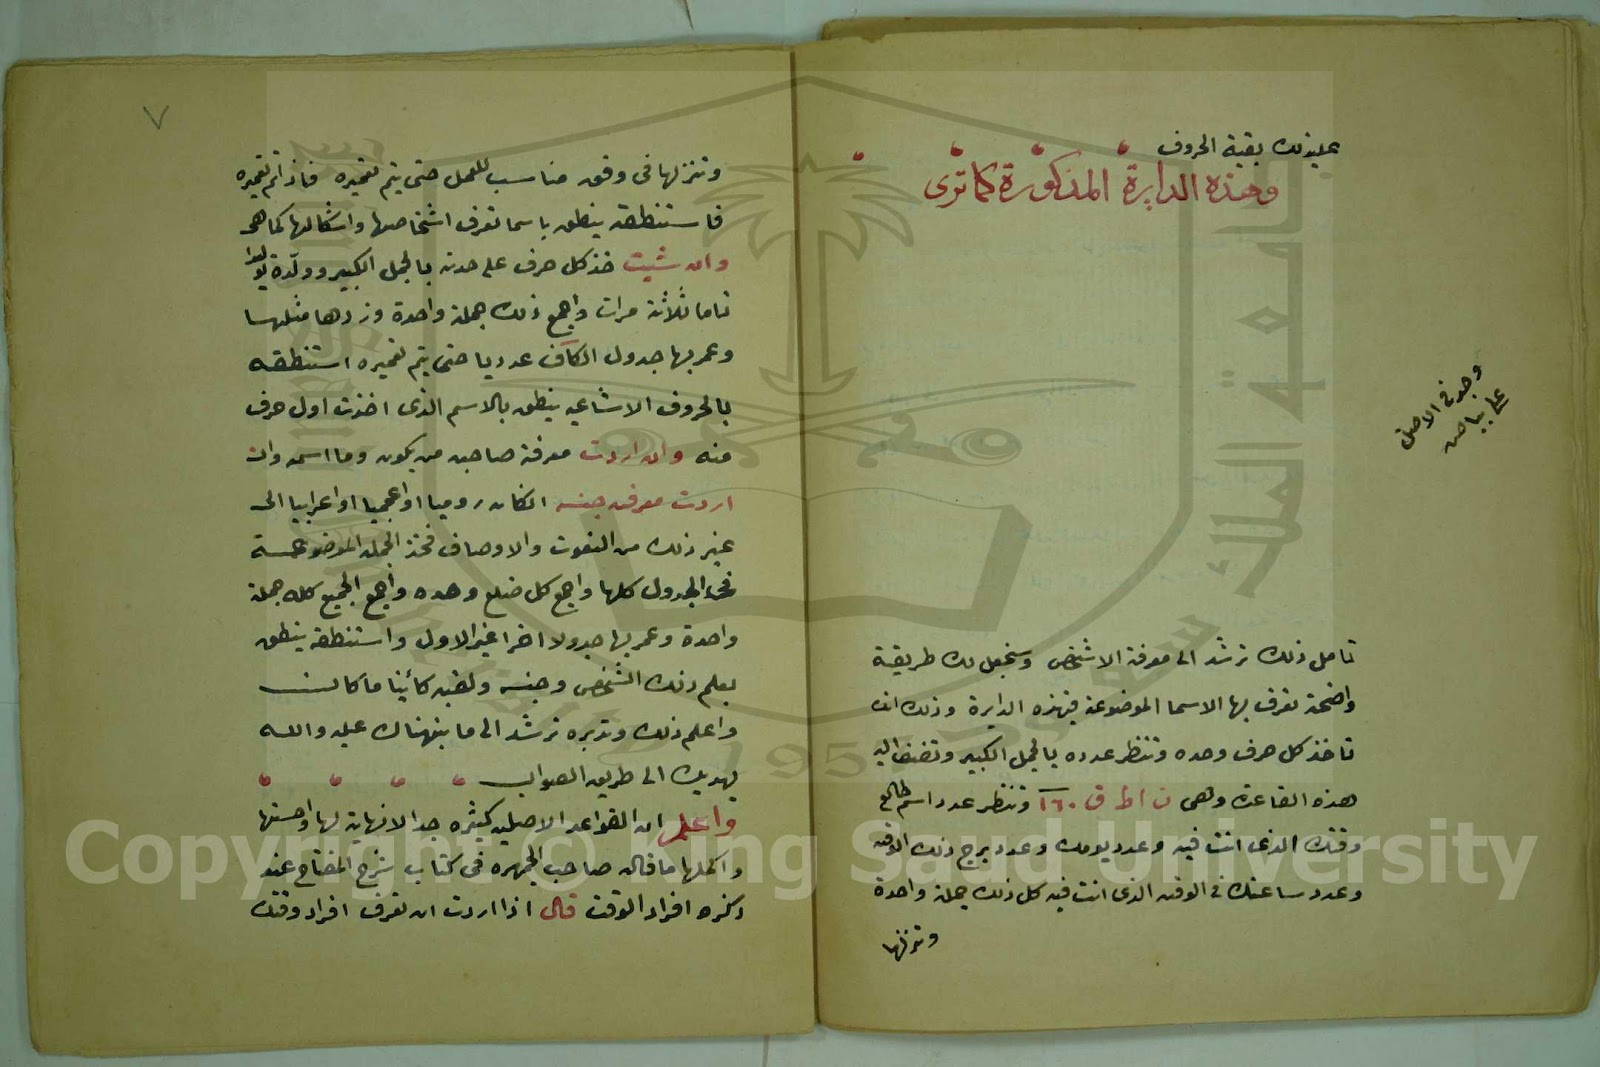 عليه ذلك بقية الحروف
وهذه الدايرة المذكورة كما ترى
وجد في الاصل
على بياض
تامل ذلك ترشد الى معرفة الاشخص وسنجعل لك طريقة
واضحة تعرف بها الاسما الموضوعة فيهذه الدايرة وذلك ان
تاخذ كل حرف وحده وتنظر عدده بالجمل الكبير وتضف اليه
هذه القاعدة وهى ن ا ط ق ١٦٠ وتنظر عدد اسم طالع
وقتك الذى انت فيه وعدد يومك وعدد برج ذلك الوقت
وعدد ساعتك فى الوقت الذى انت فيه كل ذلك جملة واحدة
وتنزلها
٧
وتنزلها فى وفق مناسب للعمل حتى يتم تعميره فاذا تم تعميره
فاستنطقه ينطق باسما تعرف اشخاصها واشكالها كما هى
وان شيت خذ كل حرف على حدته بالجمل الكبير وولّده توليدا
تاما ثلاثة مرات واجمع ذلك جملة واحدة وزدها مثلها
وعمر بها جدول الكاف عدديا حتى يتم تعميره استنطقه
بالحروف ينطق بالاسم الذى اخذت اول حرف
منه وان اردت معرفة صاحبه من يكون وما اسمه وان
اردت معرفة جنسه انكان روميا او اعجميا او اعرابيا الى
غير ذلك من النعوت والاوصاف فخذ الجمله الموضوعة
فى الجدول كلها واجمع كل ضلع وحده واجمع الجميع كله جملة
واحدة وعمر بها جدولا اخرا غير الاول واستنطقه ينطق
بعلم ذلك الشخص وجنسه ولقبه كائنا ما كان
واعلم ذلك وتدبره ترشد الى ما بينهناك عليه والله
يهديك الى طريق الصواب
واعلم ان القواعد الاصليه كثيره جدا لانهاية لها واحسنها
واكملها ما قال صاحب الجمهره فى كتاب شرح المفتاح عند
ذكره افراد الوقت قال اذا اردت ان تعرف افراد وقتك
Copyright © King Saud University
جامعة الملك سعود
195